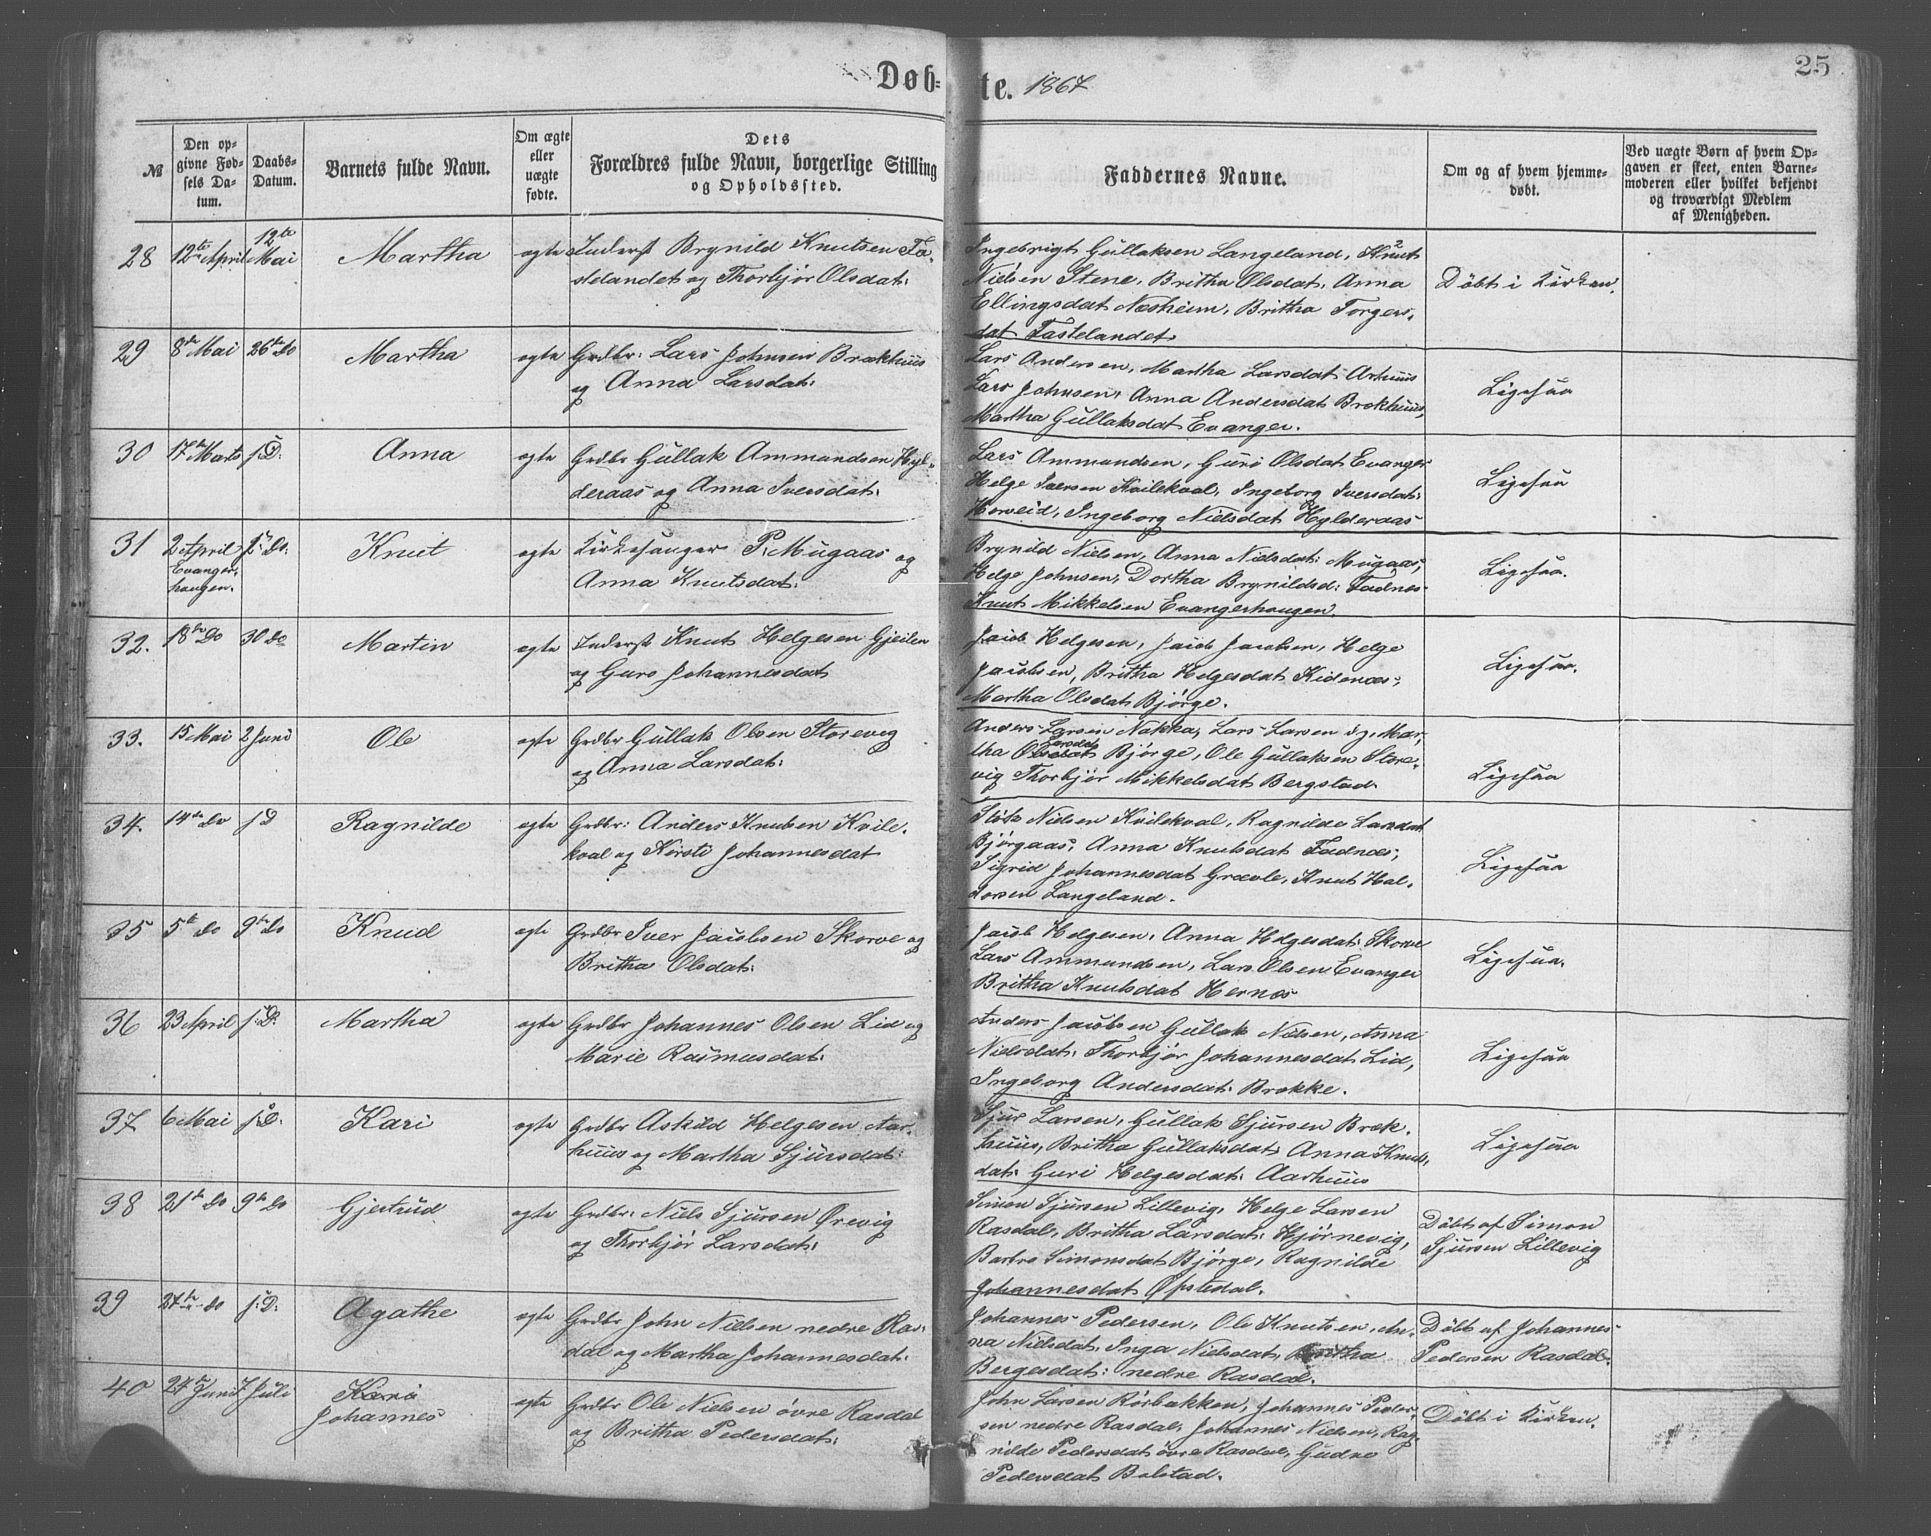 25
Døb=te. 1867
№
Den op=givne Fød=sels Da=tum.
Daabs=Datum.
Barnets fulde Navn.
Om ægte eller uægte fødte.
Dets Forældres fulde Navn, borgerlige Stilling og Opholdssted.
Faddernes Navne.
Om og af hvem hjemme=døbt.
Ved uægte Børn af hvem Op=gaven er skeet, enten Barne=moderen eller hvilket bekjendt og troværdigt Medlem af Menigheden.
28 12te April 12te Mai Martha ægte Inderst Brynild Knutsen Fa=
stelandet og Thorbjør Olsdat:
Ingebrigt Gullaksen Langeland, Knut
Nielsen Stene, Britha Olsdat, Anna
Ellingsdat Næsheim, Britha Torgers,
dat Fastelandet
Döbt i Kirken.
29 8de Mai 26de Do Martha ægte Grdbr: Lars Johnsen Brækhuus
og Anna Larsdat:
Lars Andersen, Martha Larsdat Arhuus
Lars Johnsen, Anna Andersdat Brækhuus,
Martha Gullaksdat Evanger.
Ligesaa
30 17de Marts s: D: Anna ægte Grdbr Gullak Ammundsen Hyl=
deraas og Anna Iversdat:
Lars Ammundsen, Guro Olsdat Evanger
Helge Iversen Kvilekval, Ingeborg Iversdat:
Horveid, Ingeborg Nielsdat Hylderaas
Ligesaa
31 2 April Evanger=haugen. s: Do: Knut ægte Kirkesanger P. Mugaas og
Anna Knutsdat:
Brynild Nielsen, Anna Nielsdat: Mugaas,
Helge Johnsen, Dortha Brynildsd: Fadnes
Knut Mikkelsen Evangerhaugen.
Ligesaa.
32. 18de Do 30 Do Martin ægte Inderst Knut Helgesen Gjeilen
og Guro Johannesdat
Jacob Helgesen, Jacob Jacobsen, Helge
Jacobsen, Britha Helgesdat Kidenæs,
Martha Olsdat Bjørge.
Ligesaa.
33. 15 Mai 2 Juni Ole ægte Grdbr Gullak Olsen Storevig
og Anna Larsdat:
Anders Larsen Nakka, Lars Larsen og Mar,
tha Larsdat Bjørge, Ole Gullaksen Store,
vig Thorbjør Mikkelsdat Bergstad.
Ligesaa
34. 14de Do s: D Ragnilde ægte Grdbr: Anders Knutsen Kvile,
kval og Kirsti Johannesdat
Nielsen Kvilekval, Ragnilde Larsdat
Bjørgaas, Anna Knutsdat Fadnæs,
Sigrid Johannesdat Grævle, Knut Hal,
dorsen Langeland.
Ligesaa
35 5te Do 9de Do Knud ægte Grdbr Iver Jacobsen Skorve og
Britha Olsdat:
Jacob Helgesen, Anna Helgesdat: Skorve
Lars Ammundsen, Lars Olsen Evanger
Britha Knutsdat Hernæs
Ligesaa.
36 23 April s: D: Martha ægte Grdbr Johannes Olsen Lid og
Marie Rasmusdat:
Anders Jacobsen Gullak Nielsen, Anna
Nielsdat: Thorbjør Johannesdat Lid,
Ingeborg Andersdat: Brække.
Ligesaa
37 6 Mai s: D: Kari ægte Grdbr Askild Helgesen Aar,
huus og Martha Sjursdat:
Sjur Larsen, Gullak Sjursen Bræk,
huus, Britha Gullaksdat, Anna Knuts,
dat: Guri Helgesdat: Aarhuus
Ligesaa
38 21de Do 9de Do Gjertrud ægte Grdbr: Niels Sjursen Ørevig
og Thorbjør Larsdat:
Simon Sjursen Lillevig, Helge Larsen
Rasdal, Britha Larsdat: Hjørnevig,
Barbro Simonsdat Bjørge, Ragnilde
Johannesdat Øpstedal.
Döbt af Simon
Sjursen Lillevig
39 27de Do s: D: Agathe ægte Grdbr John Nielsen nedre Ras=
dal og Martha Johannesdat:
Johannes Pedersen, Ole Knutsen, An,
na Nielsdat, Inga Nielsdat, Britha
Bergesdat: nedre Rasdal.
Döbt af Johannes
Pedersen Rasdal.
40 24de Juni 7 Juli Johannes ægte Grdbr Ole Nielsen övre Rasdal
og Britha Pedersdat:
John Larsen Rörbakken, Johannes Peder,
sen nedre Rasdal, Johannes Nielsen, Rag,
nilde Pedersdat övre Rasdal, Gudve
Pedersdat Bolstad.
Döbt i Kirken.